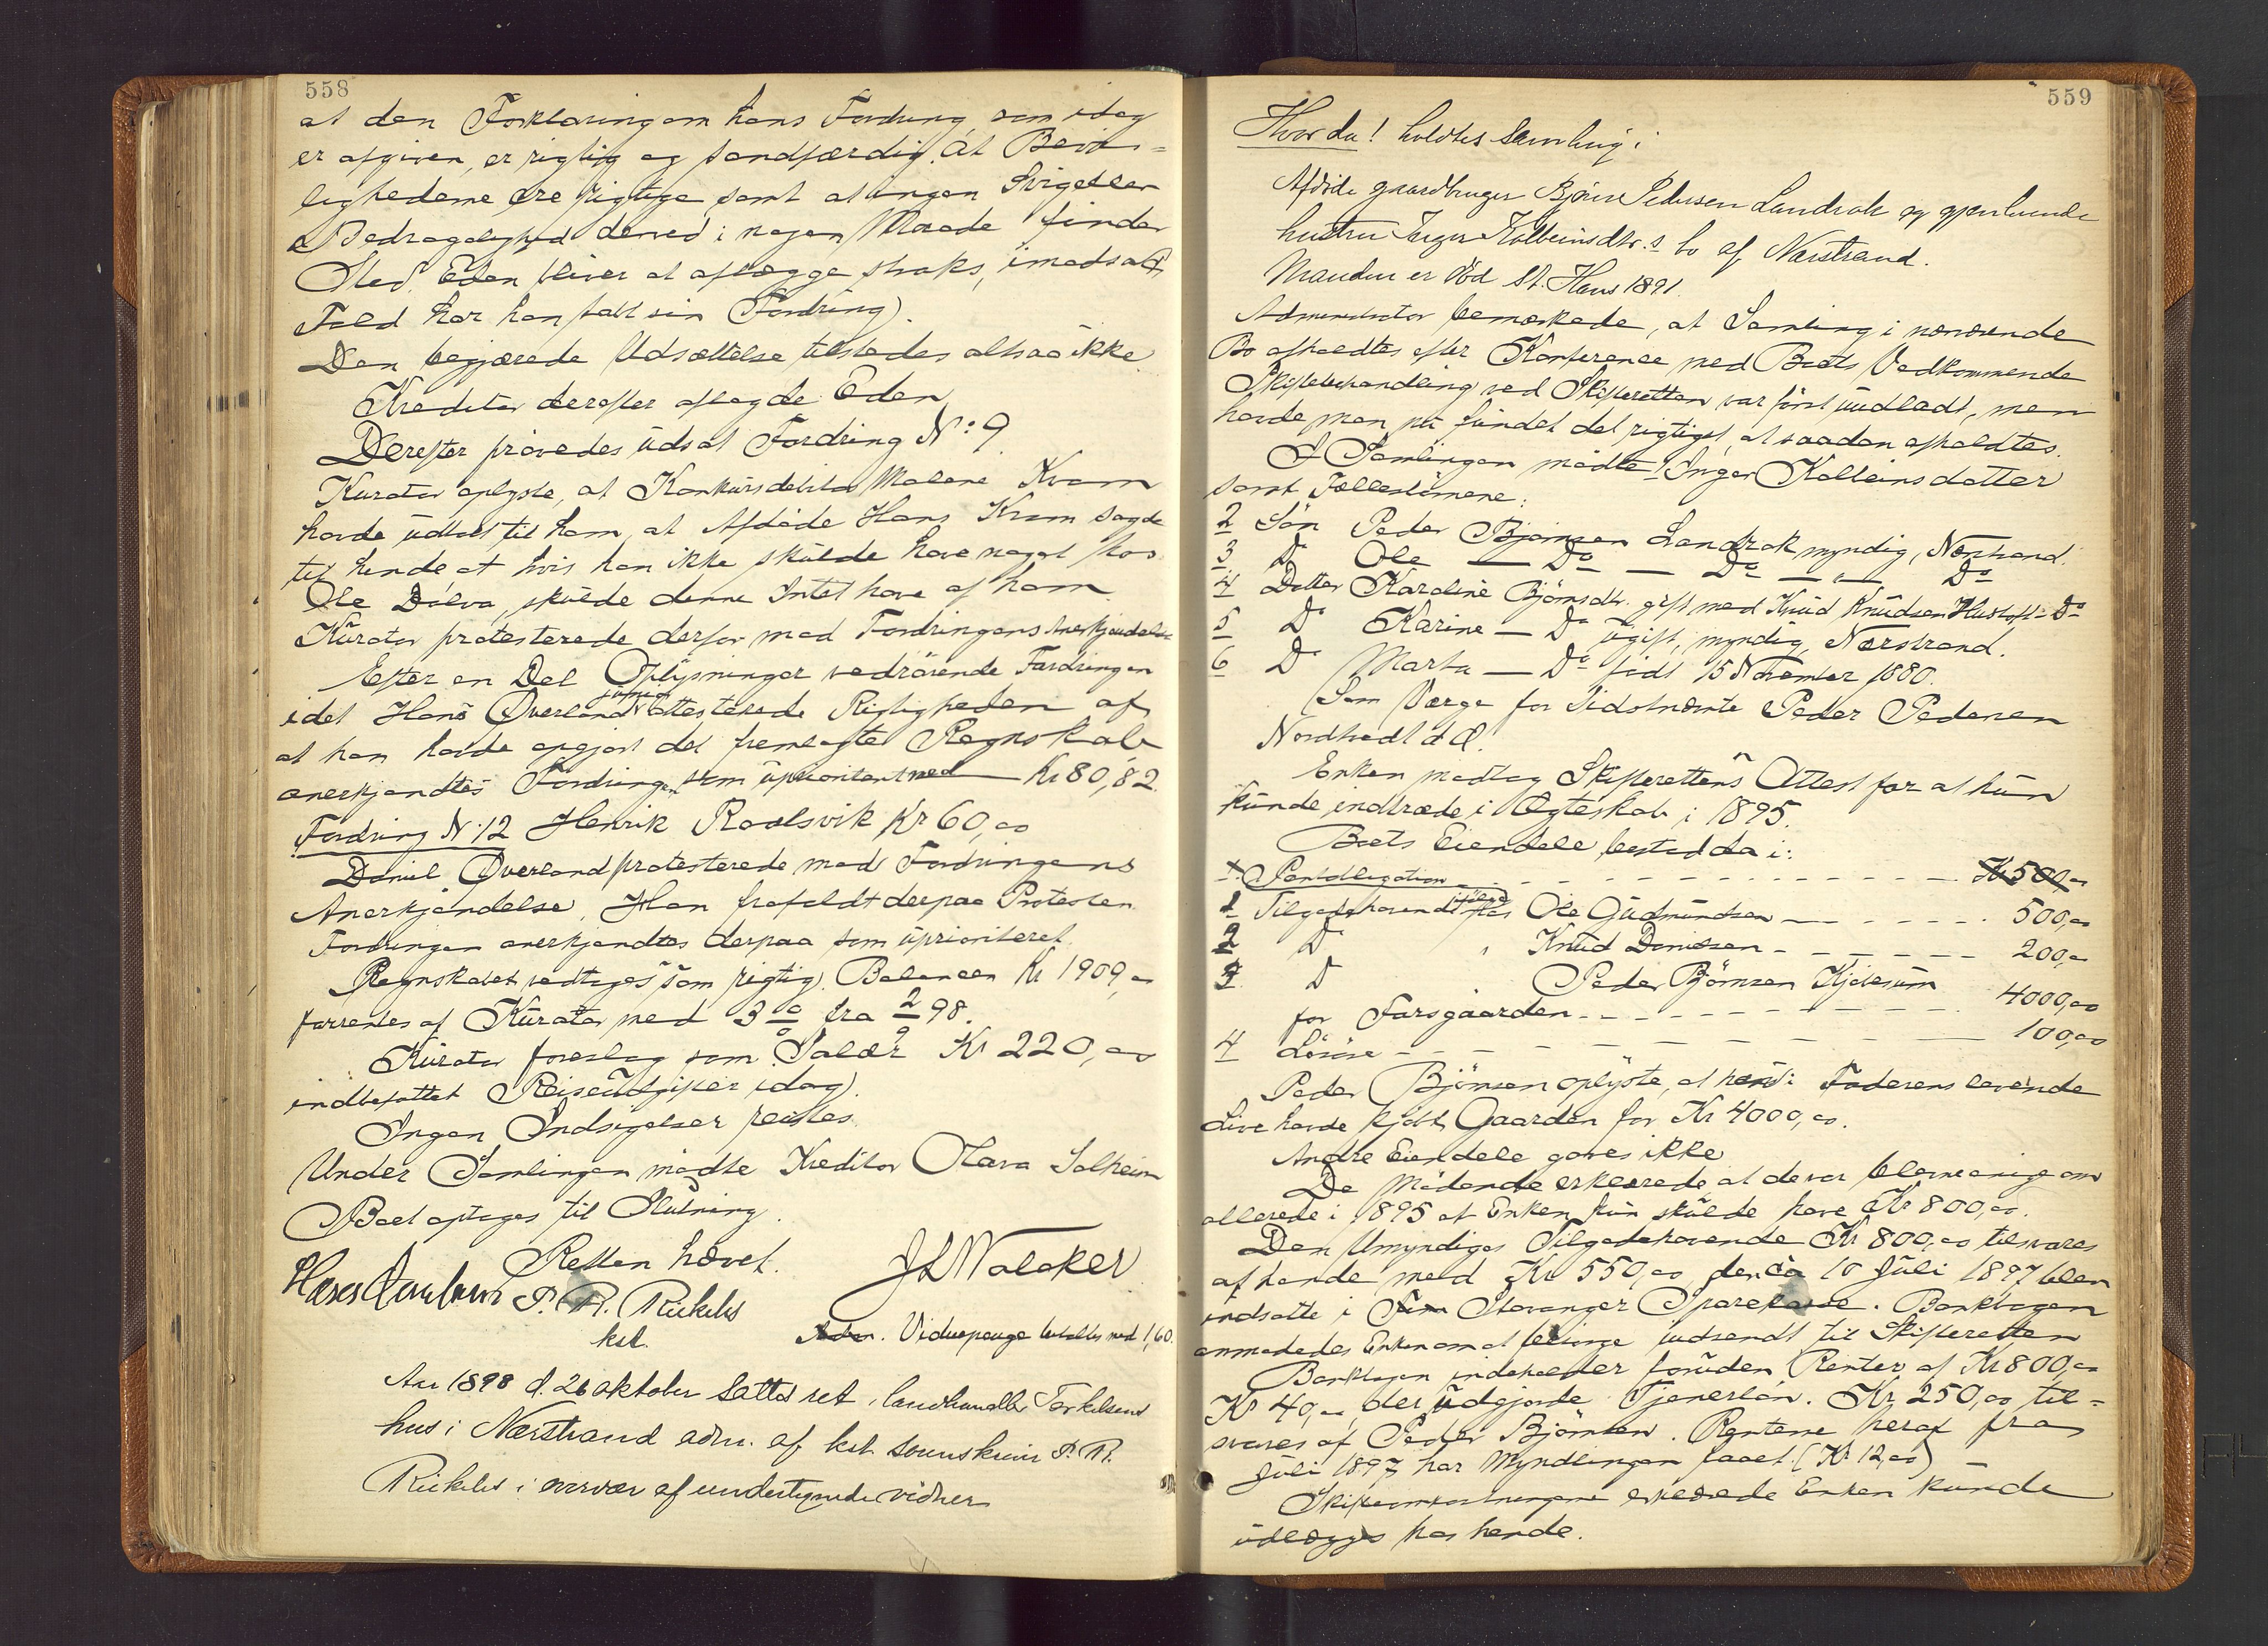 558
at den Forklaring om hans Fordring, som idag
er afgiven, er rigtig og sandfærdig. At Bevis=
lighederne ere rigtige samt at ingen Svig eller
Bedragelighed derved i nogen Maade finder
Sted. Eden bliver at aflægge straks, i modsat
Fald har han tabt sin Fordring.
Den begjærede Udsættelse tilstedes altsaa ikke.
Kreditor derefter aflagde Eden.
Derefter prøvedes udsat Fordring N: 9.
Kurator oplyste, at Konkursdebitor Malene Kvam
havde udtalt til ham, at Afdøde Hans Kvam sagde
til hende at hvis han ikke skulde have noget hos
Ole Dalva, skulde denne Intet have af ham.
Kurator protesterede derfor mod Fordringens Anerkjendelse
Efter en Del Oplysninger vedrørende Fordringen
idet Hans Øverland junior attesterede Rigtigheden af
at han havde opgjort det fremlagte Regnskab
anerkjendtes Fordringen som uprioritert med Kr 80,82.
Fordring N: 12 Henrik Raalsvik Kr 60,00
Daniel Øverland protesterede mod Fordringens
Anerkjendelse. Han frafaldt derpaa Protesten.
Fordringen anerkjendtes derpaa som uprioriteret.
Regnskabet vedtages som rigtig. Balancen Kr 1909,00
forrentes af Kurator med 3 % fra 2/9 98.
Kurator foreslog som Salær Kr 220,00
indbefattet Reiseudgifter idag.
Ingen Indsigelser reistes.
Under Samlingen mødte Kreditor Olava Solheim
Boet optages til Slutning.
Retten hævet.
J L Walaker
P. R. Rickels
kst.
Vidnepenge betaltes med 1,60.
Aar 1898 d. 26 oktober sattes ret i landhandler Terkelsens
hus i Nærstrand adm. af kst. sorenskriver P. R.
Rickels i nærvær af undertegnede vidner
559
Hvor da! holdtes Samling i
Afdøde gaardbruger Bjørn Pedersen Landrak og gjenlevende
hustru Inger Kolbeinsdtr.s bo af Nærstrand.
Manden er død St. Hans 1891.
Administrator bemærkede, at Samling i nærværende
Bo afholdtes efter Konference med Boets Vedkommende
Skiftebehandling ved Skifteretten var først undladt, men
havde man nu fundet det rigtigst, at saadan afholdtes.
I Samlingen mødte: Inger Kolbeinsdatter
samt Fællesbørnene:
2 Søn Peder Bjørnsen Landrak myndig, Nærstrand.
3 Do Ole — Do — Do — " — Do
4 Datter Karoline Bjørnsdtr. gift med Knud Knudsen Hustoft Do
5 Do Karine — Do ugift, myndig, Nærstrand.
6 Do Marta — Do født 15 November 1880.
Som Værge for Sidstnævnte Peder Pedersen
Nordtvedt d.Æ.
Enken modtog Skifterettens Attest for at hun
kunde indtræde i Ægteskab i 1895.
Boets Eiendele bestod da i:
1. Pantobligation Kr 500,00
1 Tilgodehavende hos Ole Gudmundsen 500,00
2 Do " Knud Danielsen 200,00
3 Do Peder Bjørnsen
for Farsgaarden 4000,00
4 Løsøre 100,00
Peder Bjørnsen oplyste, at han i Faderens levende
Live havde kjøbt Gaarden for Kr 4000,00.
Andre Eiendele gaves ikke
De Mødende erklærede at de var blevne enige om
allerede i 1895 at Enken kun skulde have Kr 800,00.
Den Umyndiges Tilgodehavende Kr 800,00 tilsvares
af hende med Kr 550,00, der da 10 Juli 1897 blev
indsatte i Stavanger Sparekasse. Bankbogen
anmodedes Enken om at besørge indsendt til Skifteretten
Bankbogen indeholder foruden Renter af Kr 800,00
Kr 40,00, der udgjorde Tjenerløn. Kr 250,00 til=
svares af Peder Bjørnsen. Renterne heraf fra
Juli 1897 har Myndlingen faaet. (Kr 12,00)
Skifteomkostningerne erklærede Enken kunde
udlægges hos hende.